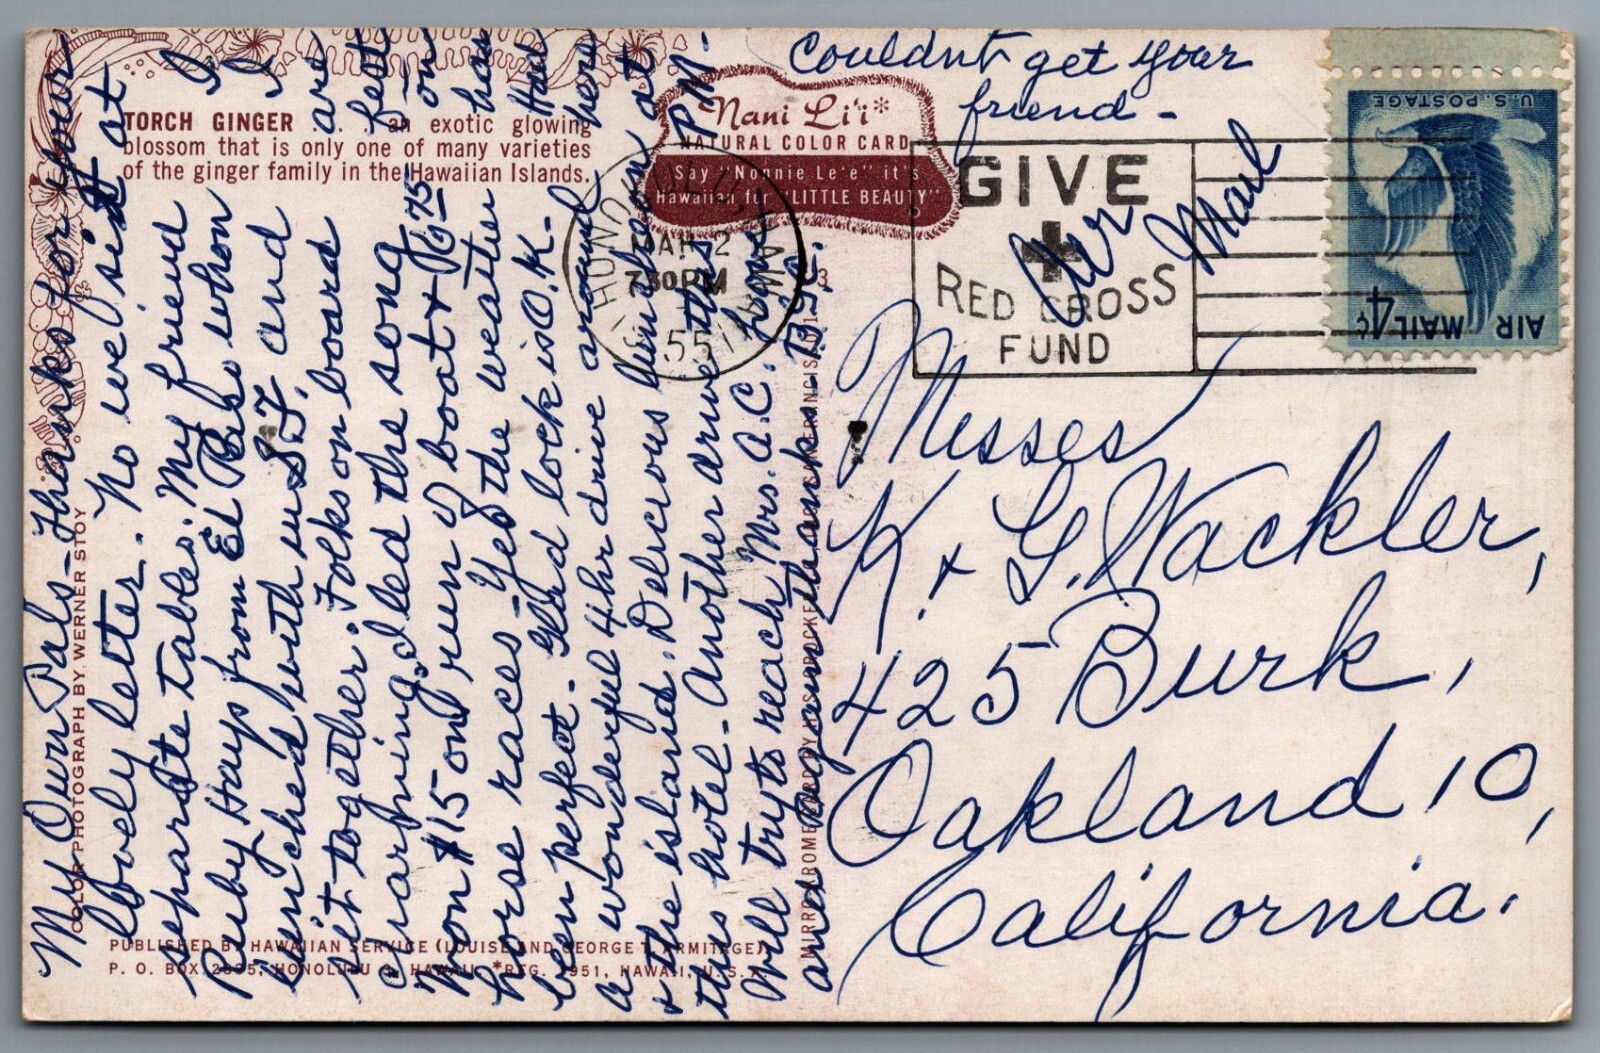 My Own Pals - Thanks for your
lovely letter. No we sit at
separate tables. My friend
Ruby Hays from El Paso whom I
lunched with in S.F. and I
sit together. Folks on board are
charming. I led the song fest
Won $15 on run of boat & $6.75 on
horse races - Yes the weather has
been perfect. Glad lock is O.K. Had
a wonderful 4 hr drive around here
& the island. Delicious luncheon at
this hotel. Another drive this P.M.
Will try to reach Mrs. A.C. Love
and again thanks - B
Couldn't get your
friend -
TORCH GINGER . . . . an exotic glowing
blossom that is only one of many varieties
of the ginger family in the Hawaiian Islands.
Nani Li'i*
NATURAL COLOR CARD
Say "Nonnie Le'e" it's
Hawaiian for "LITTLE BEAUTY"
HONOLULU
MAR 2
7 30 PM
55
HAWAII
GIVE
RED CROSS
FUND
Air
Mail
U.S. POSTAGE
AIR MAIL 4¢
Misses
K. & G. Wackler,
425 Burk,
Oakland 10,
California.
COLOR PHOTOGRAPH BY WERNER STOY
PUBLISHED BY HAWAIIAN SERVICE (LOUISE AND GEORGE T. ARMITAGE)
P. O. BOX 2835, HONOLULU HAWAII, *REG. 1951, HAWAII, U.S.A.